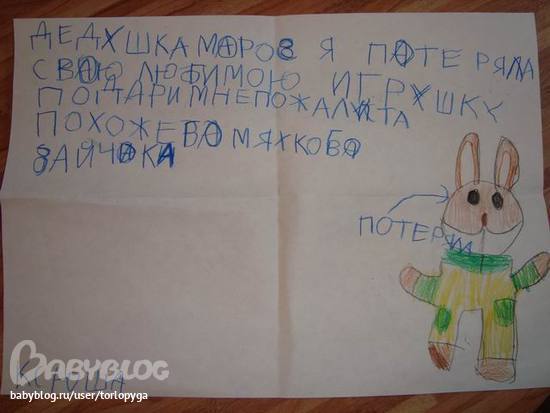 ДЕДУШКА МОРОЗ Я ПОТЕРЯЛА
СВОЮ ЛЮБИМОЮ ИГРУШКУ
ПОДАРИ МНЕ ПОЖАЛУСТА
ПОХОЖЕВО МЯХКОВО
ЗАЙЧОКА
ПОТЕРЯЛ
КСЮША
BABYBLOG
babyblog.ru/user/torlopyga